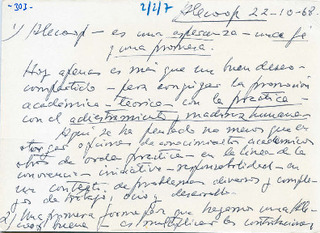 -303-
2/2/7
Alecoop 22-10-68.
1) Alecoop - es una esperanza - una fé
y una promesa.
Hoy apenas es más que un buen deseo
compartido - para conjugar la promoción
académica - teórica - con la práctica -
con el adiestramiento y madurez humana -
Aquí se ha pensado no menos que en
otorgar opciones de conocimientos académicos
otros de orden práctico - en la línea de la
convivencia - iniciativa - responsabilidad - en
un contexto de problemas diversos y comple-
jos de trabajo, ocio y desarrollo.
2) Una primera forma que hagamos una Ale-
coop buena - es multiplicar los